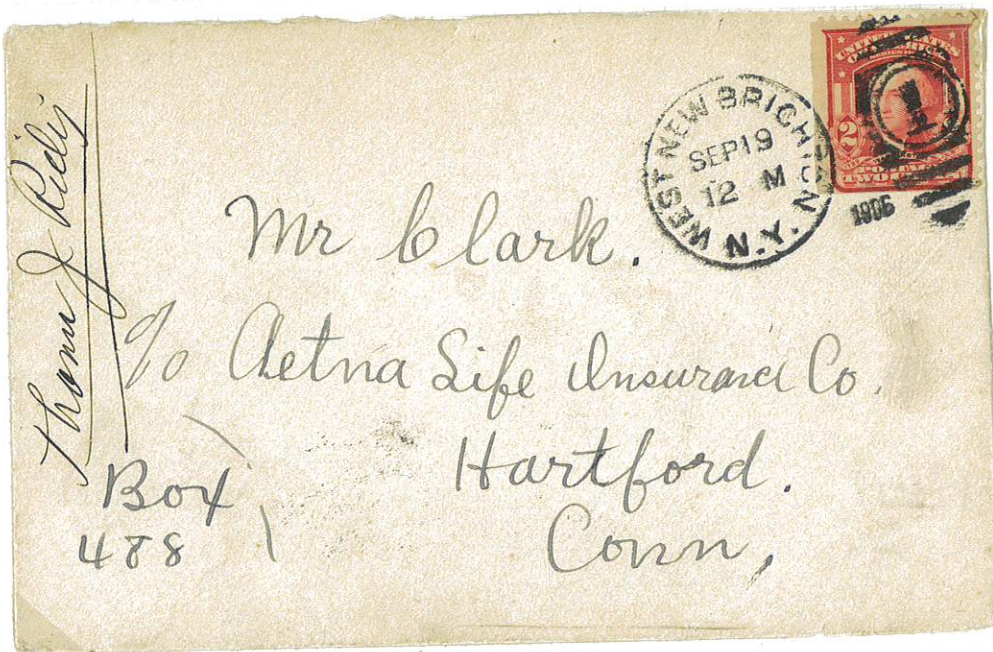 WEST NEW BRIGHTON N.Y.
SEP 19
12 M
1906
UNITED STATES
OF AMERICA
2
TWO
1
Mr Clark.
c/o Aetna Life Insurance Co.
Hartford.
Conn,
Box
488
J